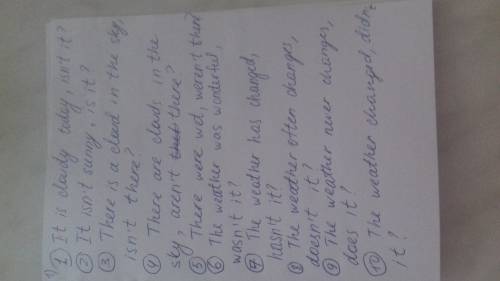 1)
① It is cloudy today, isn't it?
② It isn't sunny, is it?
③ There is a cloud in the sky,
isn't there?
④ There are clouds in the
sky, aren't there?
⑤ There were wet, weren't there?
⑥ The weather was wonderful,
wasn't it?
⑦ The weather has changed,
hasn't it?
⑧ The weather often changes,
doesn't it?
⑨ The weather never changes,
does it?
⑩ The weather changed, didn't
it?